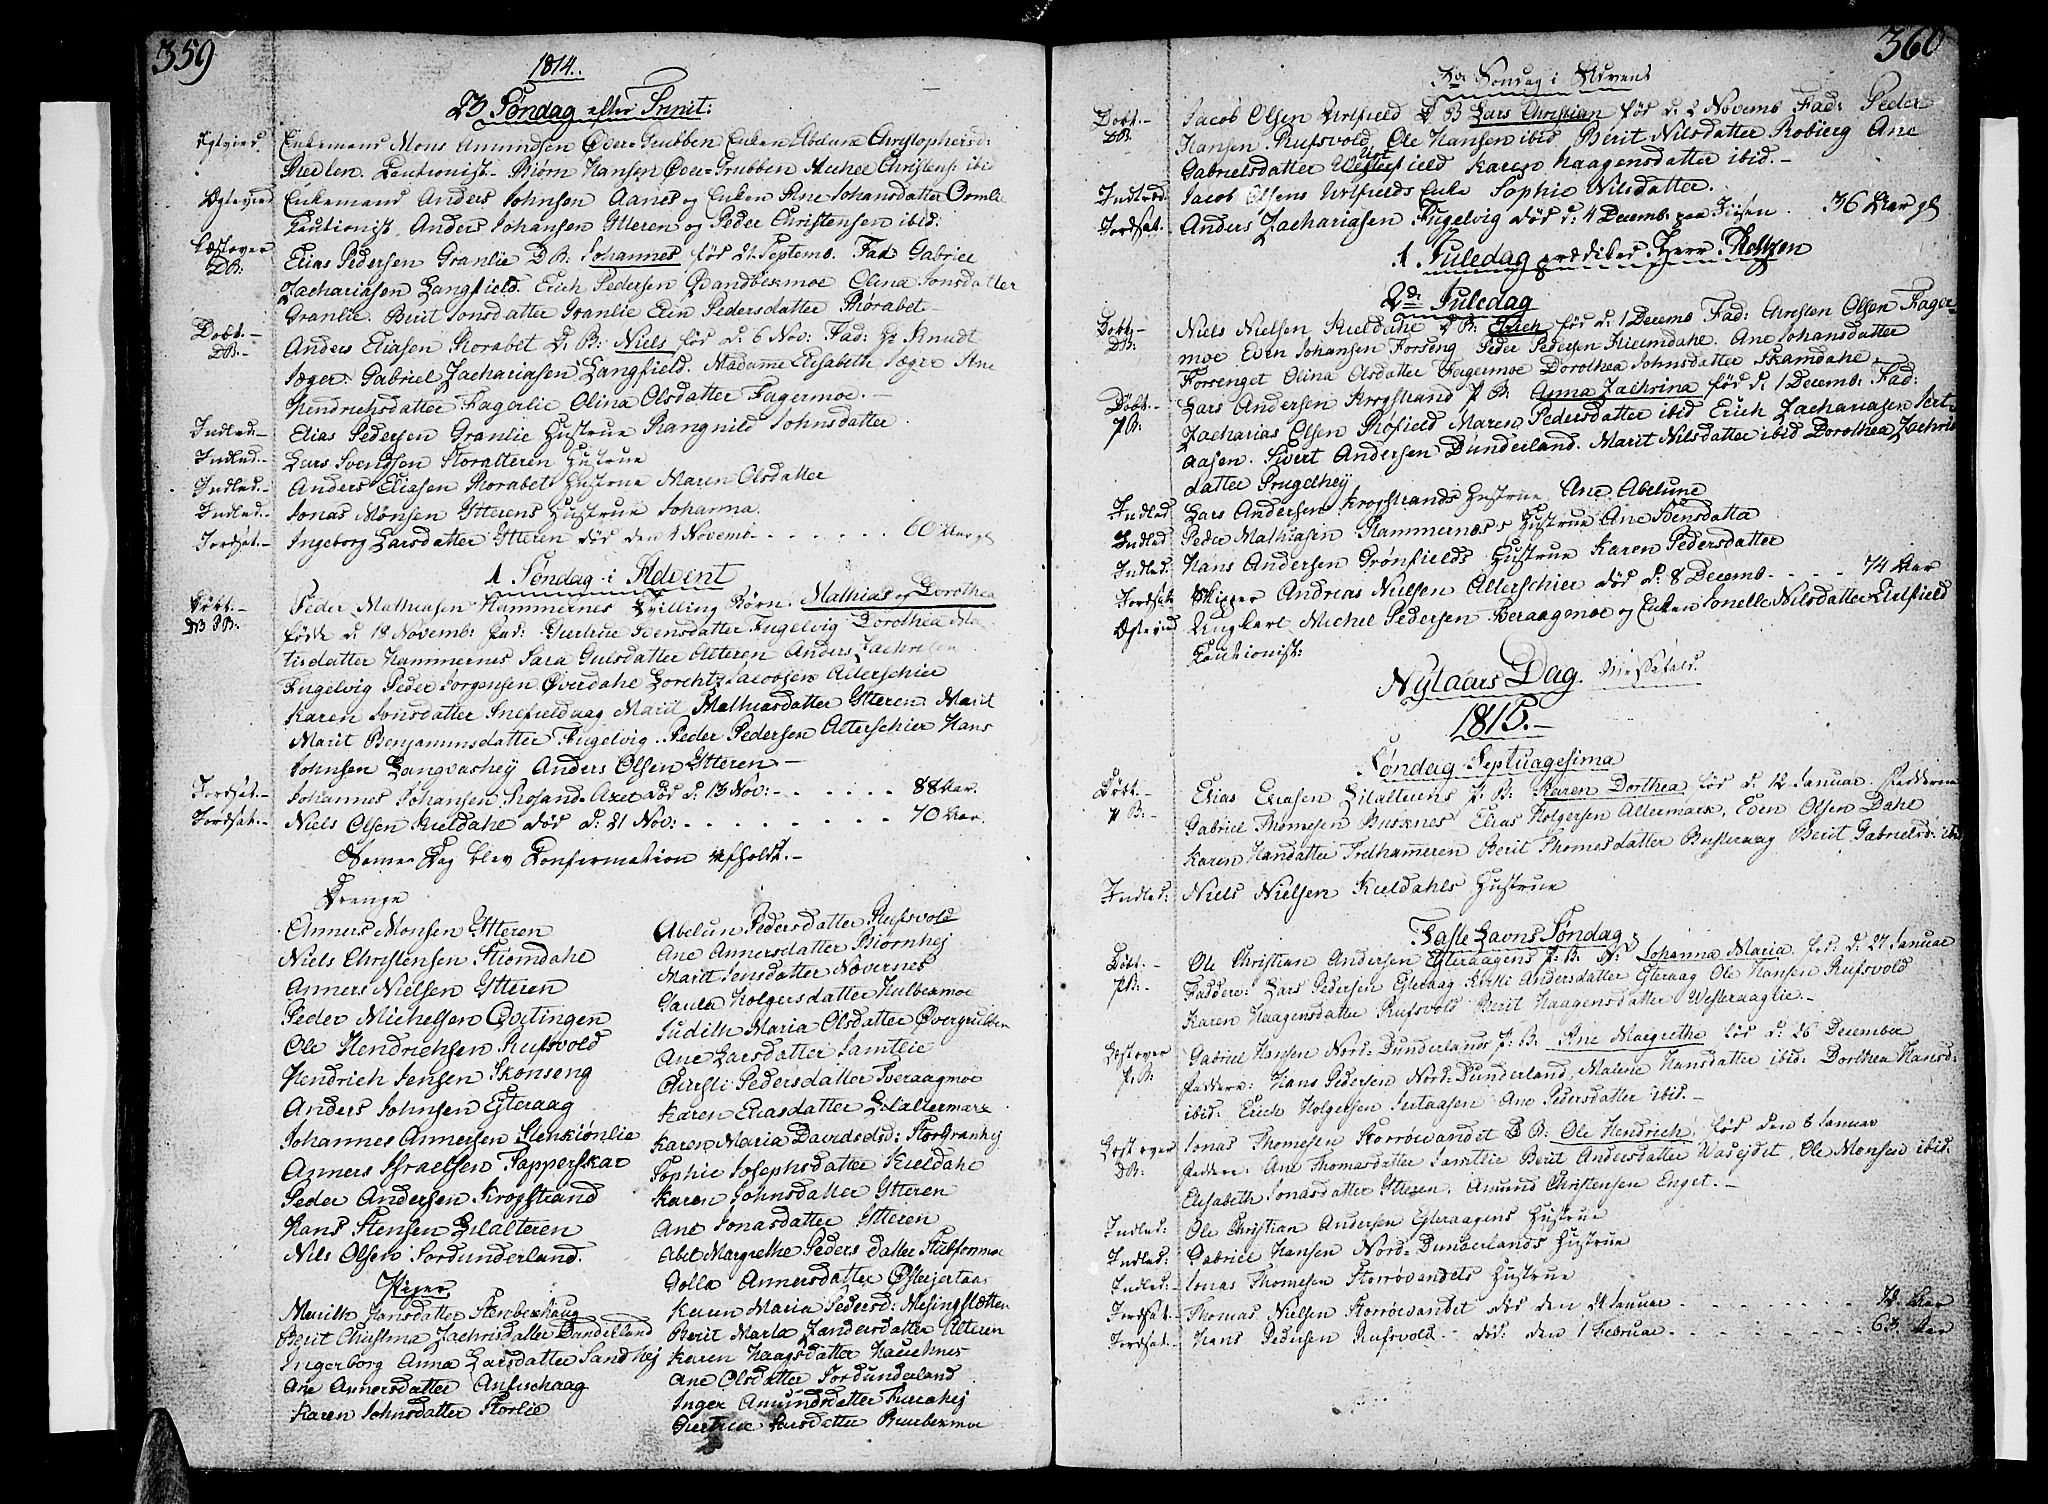 359
1814.
23 Søndag efter Trinit:
Ægtvied. Enkemand Mons Amundsen Øver-Grubben Enken Abelune Christophersd:
Cautionist. Biørn Hansen Øver-Grubben Christens: ibid
Ægtevied Enkemand Anders Johnsen Aanes og Enken Ane Johansdatter Ormlie
Cautionist, Anders Johansen Ytteren og Peder Christensen ibid:
Læst over Elias Pedersen Granlie D B: Johannes fød 21 Septemb. Fad. Gabriel
DB: Zachariasen Langfield. Erich Pedersen Olina Jonsdatter
Granlie. Berit Jonsdatter Granlie Elen Pedersdatter Storabet
Døbt.- Anders Eliasen Storabet D. B: Niels fød d. 6 Nov: Fad: Hr Knudt
DB:- Jæger. Gabriel Zachariasen Langfield. Madamme Elisabeth Jæger Ane
Hendrichsdatter Fagerlie Olina Olsdatter Fagermoe.-
Indled.- Elias Pedersen Granlie Hustrue Rangnild Johnsdatter
Indled.- Lars Svendsen Storalteren Hustrue
Indled.- Anders Eliasen Storabet Hustrue Maren Olsdatter
Indled.- Jonas Monsen Ytterens Hustrue Johanna.
Jordsat.- Ingeborg Larsdatter Ytteren død den 1 Novemb. 60 Aar gl
1 Søndag i Advent
Døbt.- Peder Mathiasen Hammernes Tvilling Børn. Mathias og Dorothea
DB PB: fødde d. 18 Novemb: Fad: Giertrue Svensdatter Fugelvig Dorothea Ma-
tisdatter Hammernes Sara Gulsdatter Alteren Anders Zachrisen
Fugelvig Peder Jorgensen Øverdahl Lorentz Jacobsen Alterschier
Karen Jonsdatter Marit Mathiasdatter Ytteren. Marit
Marit Benjaminsdatter Fugelvig. Peder Pedersen Alterschier Hans
Johnsen Langvashey Anders Olsen Ytteren.-
Jordsat.- Johannes Johansen død d. 13 Nov: 88 Aar.
Jordsat.- Niels Olsen Kieldahl død d. 21 Nov: 70 Aar.
Samme Dag blev Confirmation afholdt.-
Drenge
Anners Monsen Ytteren
Niels Christensen Stiomdahl
Anners Nielsen Ytteren
Peder Michelsen Qvitingen
Ole Hendrichsen Rufsvold
Hendrich Jensen Skonseng
Anders Johnsen Ejteraag
Johannes Annersen Stenkiønlie
Anners Israelsen Tapperskar
Peder Andersen Krogstrand
Hans Stensen Lilalteren
Nils Olsen Jordunderland.
Piger
Marith Hansdatter Stenberhaug
Berit Christina Zachrisdatter Dunderland
Ingerborg Anna Larsdatter Sandhej
Ane Annersdatter
Karen Johnsdatter Storlie
Abelun Pedersdatter Rufsvold
Ane Annersdatter Biørnhej
Marit Jensdatter Nævernes
Paula Holgersdatter Hulbekmoe
Judith Maria Olsdatter Øvergrubben
Ane Larsdatter Jamtlie
Kiersti Pedersdatter Tveraagmoe
Karen Eliasdatter Lilaltermark
Karen Maria Davidsdsd: Storgranhej
Sophie Josephsdatter Kieldahl
Karen Johnsdatter Ytteren
Ane Jonasdatter Ytteren
Abel Margrethe Peders datter Stupforsmoe
Golla Annersdatter
Karen Maria Pedersd: Mesingsletten
Berit Marta Zandersdatter Alteren
Karen Haagsdatter Hauknes
Ane Olsdatter Jordunderland
Inger Amundsdatter Furuhej
Giertrue Larsdatter
360
3die Søndag i Advent
Døbt.- Jacob Olsen Urlfield D B Lars Christian fød d. 2 Novemb Fad: Peder
DB. Hansen Rufsvold. Ole Hansen ibid Berit Nilsdatter Robierg Ane
Gabrielsdatter Karen Haagensdatter ibid.-
Indled Jacob Olsens Urlfields Enke Sophie Nilsdatter.
Jordsat. Anders Zachariasen Fugelvig død d. 4 Decemb. 36 Aar gl
1 Juledag prædiket Herr
2den Juledag
Døbt.- Niels Nielsen Kieldahl D B: Erich fød d. 1 Decemb Fad: Chresten Olsen Fager-
DB: moe Even Johansen Forseng Peder Pedersen Ane Johansdatter
Forsenget Olina Olsdatter Fagermoe Dorothea Johnsdatter
Døbt.- Lars Andersen Krogstrand P B: Anna Zachrina fød d. 1 Decemb: Fad:
PB: Zacharias Olsen Røsfield Maren Pedersdatter ibid Erich Zachariasen
aasen. Sivert Andersen Dunderland. Marit Nilsdatter ibid Dorothea Zachris
datter
Indled Lars Andersen Krogstrands Hustrue, Ane Abelune
Indled Peder Mathiasen Hammernæss Hustrue Ane Svensdatter
Indled: Hans Andersen Grønfields Hustrue Karen Pedersdatter
Jordsat. Skipper Andreas Nielsen Alterschier død d. 8 Decemb. 74 Aar
Ægtvied Ungkarl Michel Pedersen Tveraagmoe og Enken Jonelle Nilsdatter Urlfield
Cautionist:
Nytaars Dag.
1815.-
Søndag Septuagesima
Døbt.- Elias Eliasen Lilalterens P. B: Karen Dorthea fød d. 12 Januar Fadderne
P B:- Gabriel Thomesen Busknes, Elias Holgersen Altermark, Even Olsen Dahl
Karen Hansdatter Berit Thomesdatter Busteraag Berit Gabrielsd: ibid
Indled: Niels Nielsen Kieldahls Hustrue
Faste Lavns Søndag
Døbt.- Ole Christian Andersen Ejteraagens P. B. N: Johanna Maria fød: d. 27 Januar
PB.- Faddere: Lars Pedersen Ejteraag Kirsti Andersdatter Ejteraag Ole Hansen Rufsvold
Karen Haagensdatter Rufsvold Berit Haagensdatter Westeraaglie.-
Læst over Gabriel Hansen Nord-Dunderlands P. B: Ane Margrethe fød d. 26 December
P.B: Faddere: Hans Pedersen Nord-Dunderland, Malene Hansdatter ibid: Dorothea Hansd:
ibid: Erich Holgersen Ane Pedersdatter ibid.-
Læst over Jonas Thomesen Storrøvandet D B: Ole Hendrich, fød den 6 Januar
DB: Faddere: Ane Thomasdatter Jamtlie Berit Andersdatter Ole Monsen ibid.
Elisabeth Jonasdatter Ytteren. Amund Christensen Enget.-
Indled: Ole Christian Andersen Ejteraagens Hustrue
Indled: Gabriel Hansen Nord-Dunderlands Hustrue
Indled: Jonas Thomesen Storrøvandets Hustrue
Jordsat: Thomas Nielsen Storrøvandet død den 21 Januar 72 Aar
Jordsat: Hans Pedersen Rufsvold. død: den 1 Februar 63. Aar